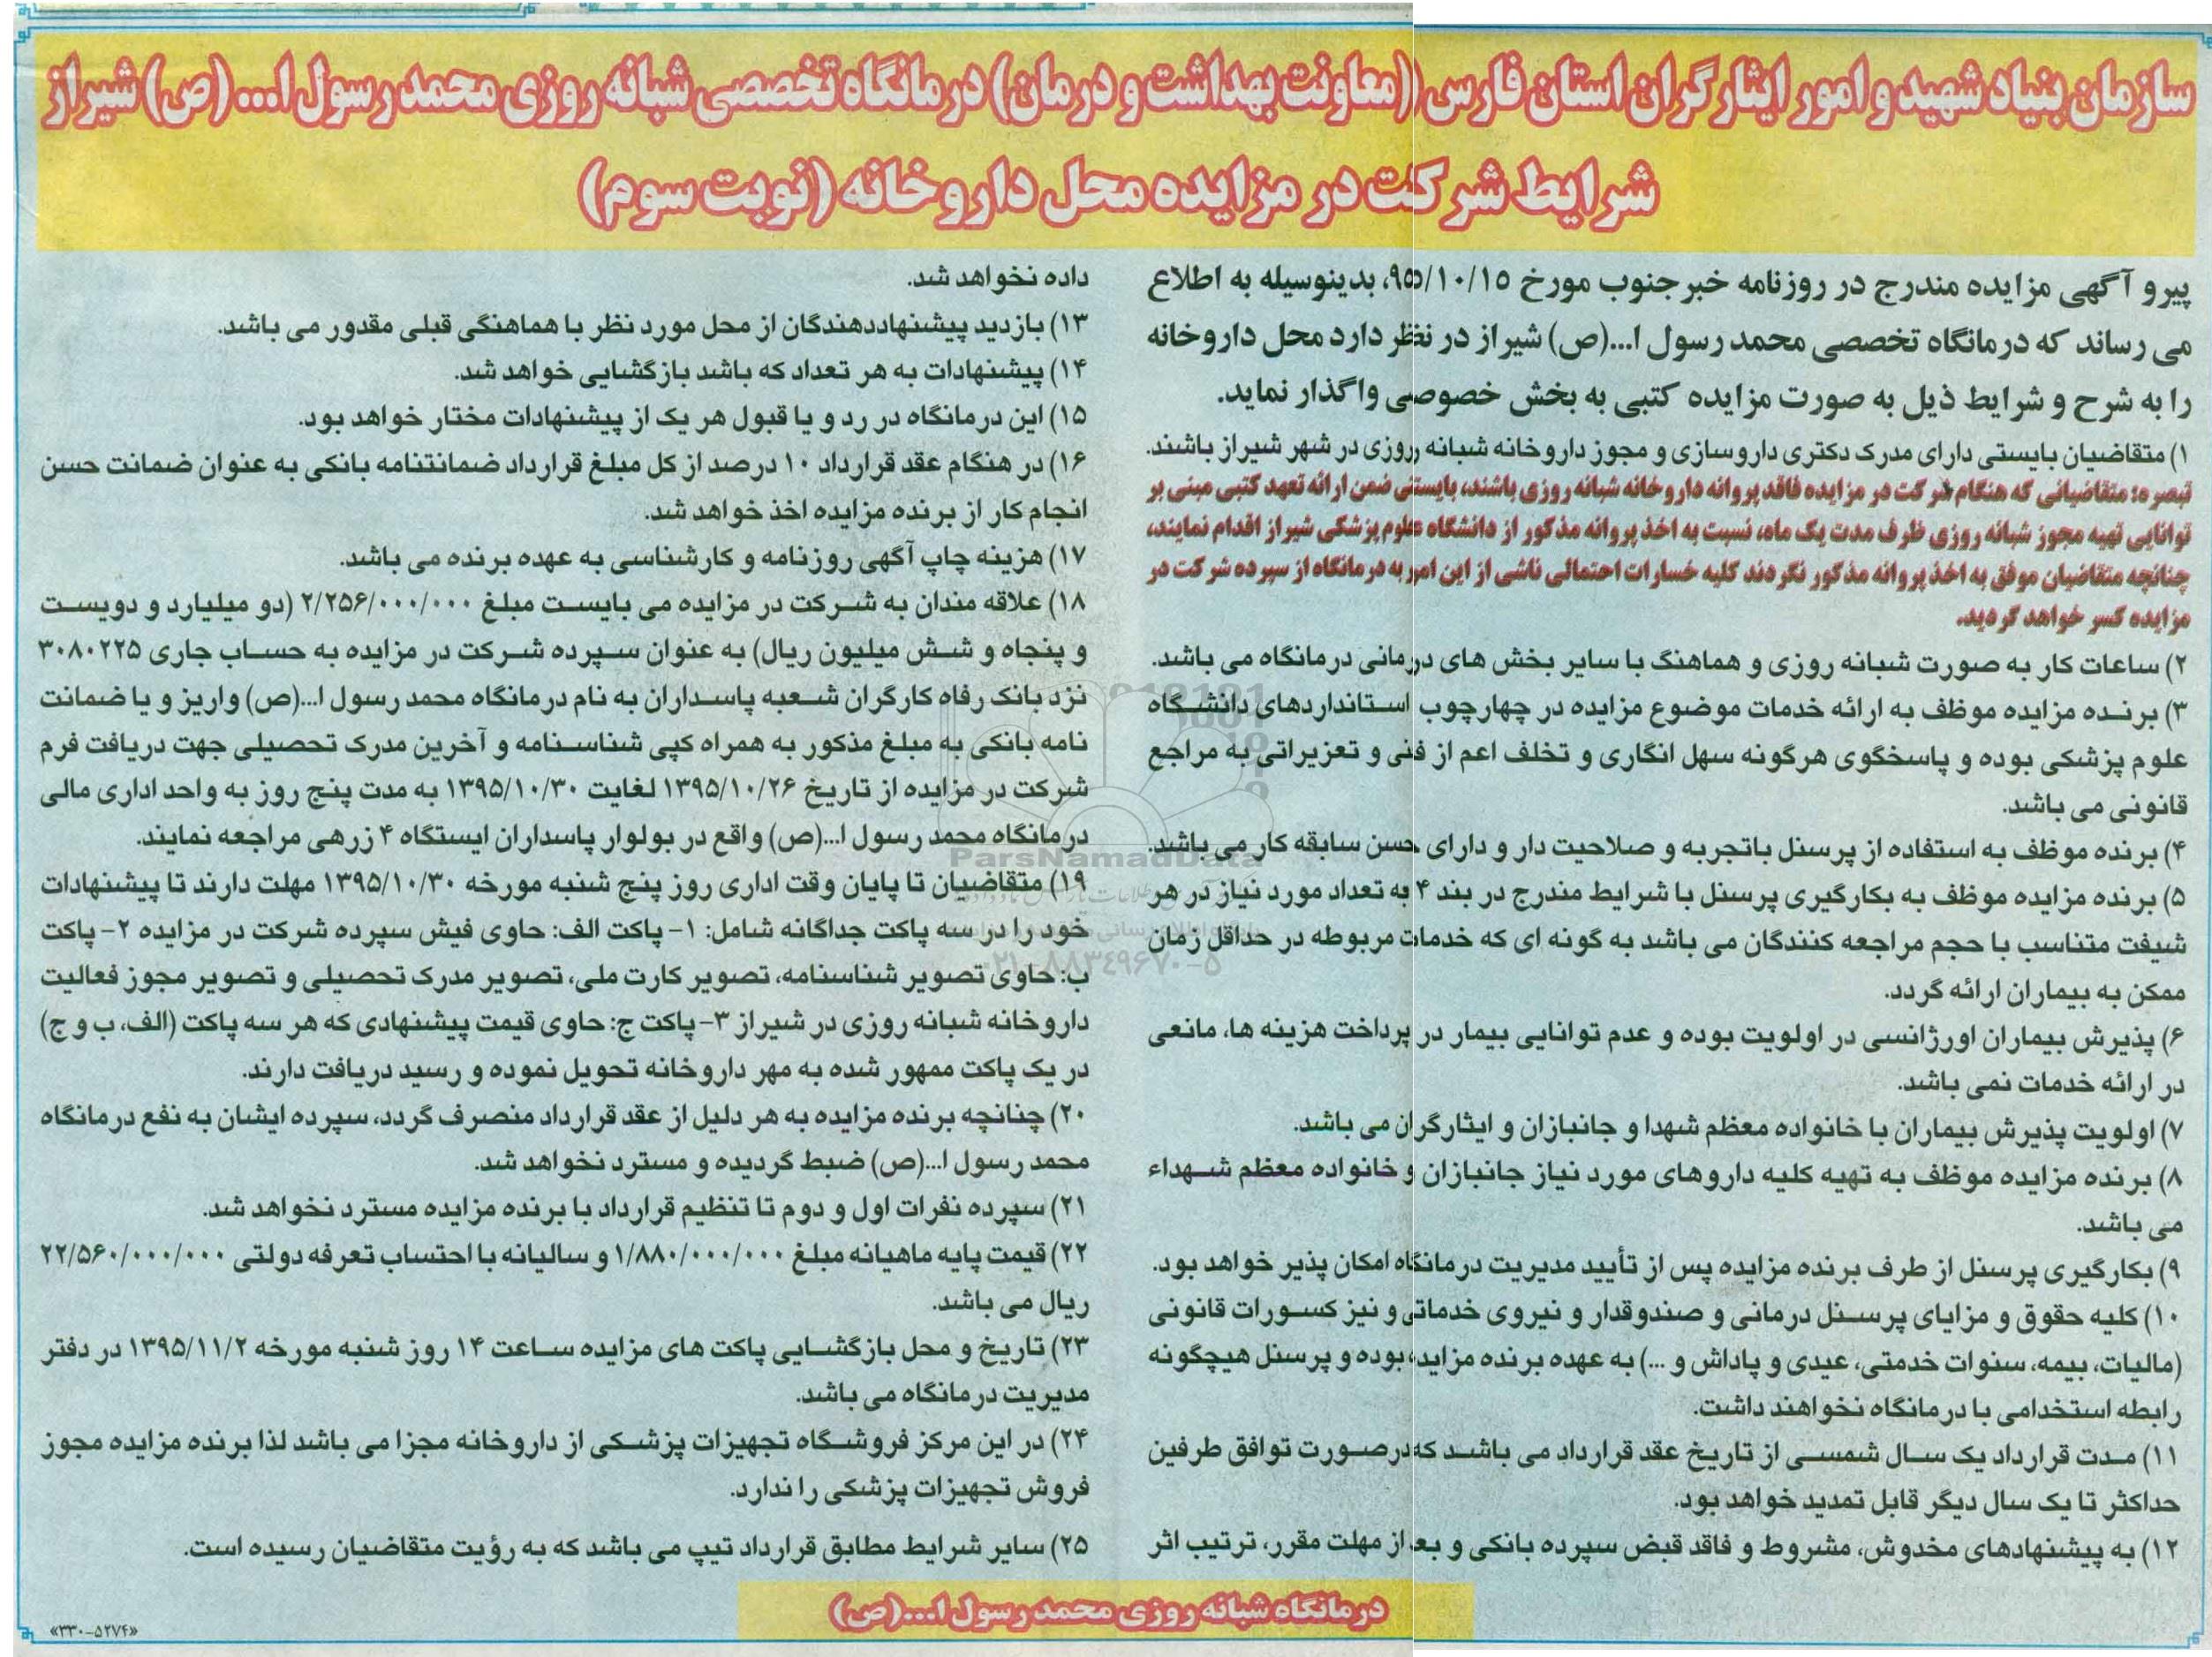 سازمان بنیاد شهید و امور ایثارگران استان فارس (معاونت بهداشت و درمان) درمانگاه تخصصی شبانه روزی محمد رسول ا...(ص) شیراز
شرایط شرکت در مزایده محل داروخانه (نوبت سوم)
پیرو آگهی مزایده مندرج در روزنامه خبرجنوب مورخ ۹۵/۱۰/۱۵، بدینوسیله به اطلاع
می رساند که درمانگاه تخصصی محمد رسول ا...(ص) شیراز در نظر دارد محل داروخانه
را به شرح و شرایط ذیل به صورت مزایده کتبی به بخش خصوصی واگذار نماید.
۱) متقاضیان بایستی دارای مدرک دکتری داروسازی و مجوز داروخانه شبانه روزی در شهر شیراز باشند.
تبصره: متقاضیانی که هنگام شرکت در مزایده فاقد پروانه داروخانه شبانه روزی باشند، بایستی ضمن ارائه تعهد کتبی مبنی بر
توانایی تهیه مجوز شبانه روزی ظرف مدت یک ماه، نسبت به اخذ پروانه مذکور از دانشگاه علوم پزشکی شیراز اقدام نمایند،
چنانچه متقاضیان موفق به اخذ پروانه مذکور نگردند کلیه خسارات احتمالی ناشی از این امور به درمانگاه از سپرده شرکت در
مزایده کسر خواهد گردید.
۲) ساعات کار به صورت شبانه روزی و هماهنگ با سایر بخش های درمانی درمانگاه می باشد.
۳) برنده مزایده موظف به ارائه خدمات موضوع مزایده در چهارچوب استانداردهای دانشگاه
علوم پزشکی بوده و پاسخگوی هرگونه سهل انگاری و تخلف اعم از فنی و تعزیراتی به مراجع
قانونی می باشد.
۴) برنده موظف به استفاده از پرسنل باتجربه و صلاحیت دار و دارای حسن سابقه کار می باشد.
۵) برنده مزایده موظف به بکارگیری پرسنل با شرایط مندرج در بند ۴ به تعداد مورد نیاز در هر
شیفت متناسب با حجم مراجعه کنندگان می باشد به گونه ای که خدمات مربوطه در حداقل زمان
ممکن به بیماران ارائه گردد.
۶) پذیرش بیماران اورژانسی در اولویت بوده و عدم توانایی بیمار در پرداخت هزینه ها، مانعی
در ارائه خدمات نمی باشد.
۷) اولویت پذیرش بیماران با خانواده معظم شهدا و جانبازان و ایثارگران می باشد.
۸) برنده مزایده موظف به تهیه کلیه داروهای مورد نیاز جانبازان و خانواده معظم شهداء
می باشد.
۹) بکارگیری پرسنل از طرف برنده مزایده پس از تأیید مدیریت درمانگاه امکان پذیر خواهد بود.
۱۰) کلیه حقوق و مزایای پرسنل درمانی و صندوقدار و نیروی خدماتی و نیز کسورات قانونی
(مالیات، بیمه، سنوات خدمتی، عیدی و پاداش و ...) به عهده برنده مزایده بوده و پرسنل هیچگونه
رابطه استخدامی با درمانگاه نخواهند داشت.
۱۱) مدت قرارداد یک سال شمسی از تاریخ عقد قرارداد می باشد که درصورت توافق طرفین
حداکثر تا یک سال دیگر قابل تمدید خواهد بود.
۱۲) به پیشنهادهای مخدوش، مشروط و فاقد قبض سپرده بانکی و بعد از مهلت مقرر، ترتیب اثر
داده نخواهد شد.
۱۳) بازدید پیشنهاددهندگان از محل مورد نظر با هماهنگی قبلی مقدور می باشد.
۱۴) پیشنهادات به هر تعداد که باشد بازگشایی خواهد شد.
۱۵) این درمانگاه در رد و یا قبول هر یک از پیشنهادات مختار خواهد بود.
۱۶) در هنگام عقد قرارداد ۱۰ درصد از کل مبلغ قرارداد ضمانتنامه بانکی به عنوان ضمانت حسن
انجام کار از برنده مزایده اخذ خواهد شد.
۱۷) هزینه چاپ آگهی روزنامه و کارشناسی به عهده برنده می باشد.
۱۸) علاقه مندان به شرکت در مزایده می بایست مبلغ ۲/۲۵۶/۰۰۰/۰۰۰ (دو میلیارد و دویست
و پنجاه و شش میلیون ریال) به عنوان سپرده شرکت در مزایده به حساب جاری ۳۰۸۰۲۲۵
نزد بانک رفاه کارگران شعبه پاسداران به نام درمانگاه محمد رسول ا...(ص) واریز و یا ضمانت
نامه بانکی به مبلغ مذکور به همراه کپی شناسنامه و آخرین مدرک تحصیلی جهت دریافت فرم
شرکت در مزایده از تاریخ ۱۳۹۵/۱۰/۲۶ لغایت ۱۳۹۵/۱۰/۳۰ به مدت پنج روز به واحد اداری مالی
درمانگاه محمد رسول ا...(ص) واقع در بولوار پاسداران ایستگاه ۴ زرهی مراجعه نمایند.
۱۹) متقاضیان تا پایان وقت اداری روز پنج شنبه مورخه ۱۳۹۵/۱۰/۳۰ مهلت دارند تا پیشنهادات
خود را در سه پاکت جداگانه شامل: ۱- پاکت الف: حاوی فیش سپرده شرکت در مزایده ۲- پاکت
ب: حاوی تصویر شناسنامه، تصویر کارت ملی، تصویر مدرک تحصیلی و تصویر مجوز فعالیت
داروخانه شبانه روزی در شیراز ۳- پاکت ج: حاوی قیمت پیشنهادی که هر سه پاکت (الف، ب و ج)
در یک پاکت ممهور شده به مهر داروخانه تحویل نموده و رسید دریافت دارند.
۲۰) چنانچه برنده مزایده به هر دلیل از عقد قرارداد منصرف گردد، سپرده ایشان به نفع درمانگاه
محمد رسول ا...(ص) ضبط گردیده و مسترد نخواهد شد.
۲۱) سپرده نفرات اول و دوم تا تنظیم قرارداد با برنده مزایده مسترد نخواهد شد.
۲۲) قیمت پایه ماهیانه مبلغ ۱/۸۸۰/۰۰۰/۰۰۰ و سالیانه با احتساب تعرفه دولتی ۲۲/۵۶۰/۰۰۰/۰۰۰
ریال می باشد.
۲۳) تاریخ و محل بازگشایی پاکت های مزایده ساعت ۱۴ روز شنبه مورخه ۱۳۹۵/۱۱/۲ در دفتر
مدیریت درمانگاه می باشد.
۲۴) در این مرکز فروشگاه تجهیزات پزشکی از داروخانه مجزا می باشد لذا برنده مزایده مجوز
فروش تجهیزات پزشکی را ندارد.
۲۵) سایر شرایط مطابق قرارداد تیپ می باشد که به رؤیت متقاضیان رسیده است.
درمانگاه شبانه روزی محمد رسول ا...(ص)
«۳۳۰-۵۲۷۴»
ParsNamadData
۰۲۱-۸۸۳۴۹۶۷۰-۵